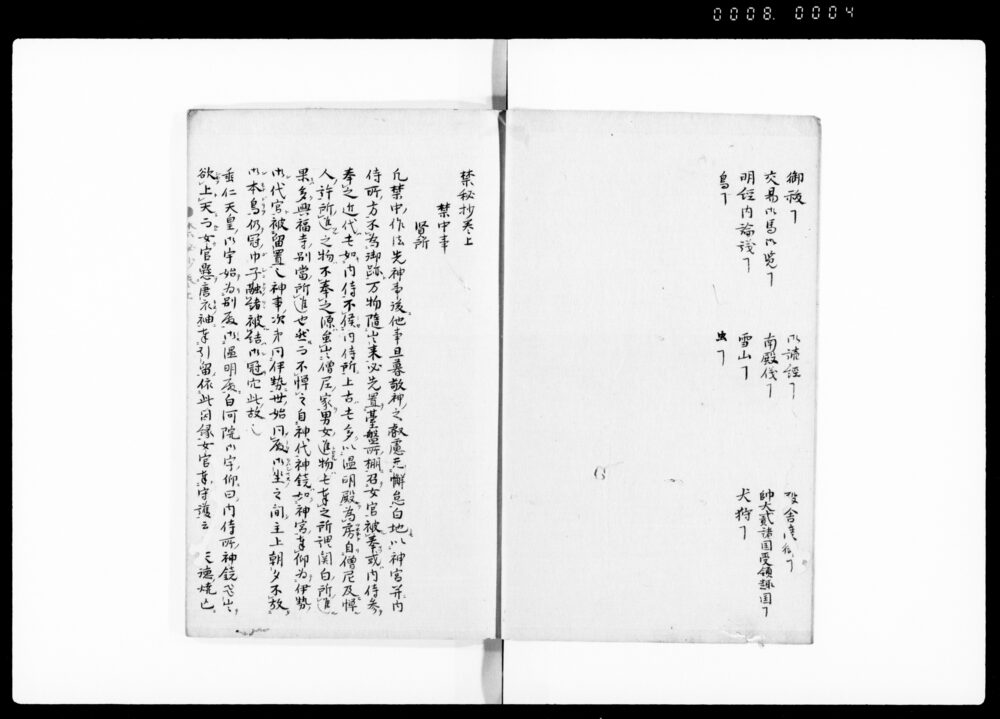 0008. 0004
御祓ヿ
交易御馬御覧ヿ
明経内論議ヿ
鳥ヿ
御読経ヿ
南殿儀ヿ
雪山ヿ
虫ヿ
帥大貳諸国受領赴国ヿ
犬狩ヿ
禁秘抄巻上
禁中事
賢所
凡禁中作法先神事後他事旦暮敬神之叡慮無懈怠白地以神宮并内
侍所方不為御跡万物随出来必先置臺盤所棚召女官被奉或内侍参
奉之近代女如内侍不候内侍所上古女多以温明殿為房自僧尼及憚
人許所進之物不奉之源出僧尼家男女進物七奉之所謂関白所進
果多興福寺別當所進也然而不憚之自神代神鏡如神宮奉仰為伊勢
御代官被留置之神事次第同伊勢世始同殿御坐之間主上朝夕不放
御本鳥仍冠巾子融諸被結御冠穴此故也
垂仁天皇御宇始為別殿御温明殿白河院御宇仰曰内侍所神鏡飛出
欲上天而女官懸唐衣袖奉引留依此因縁女官奉守護云 天徳焼亡